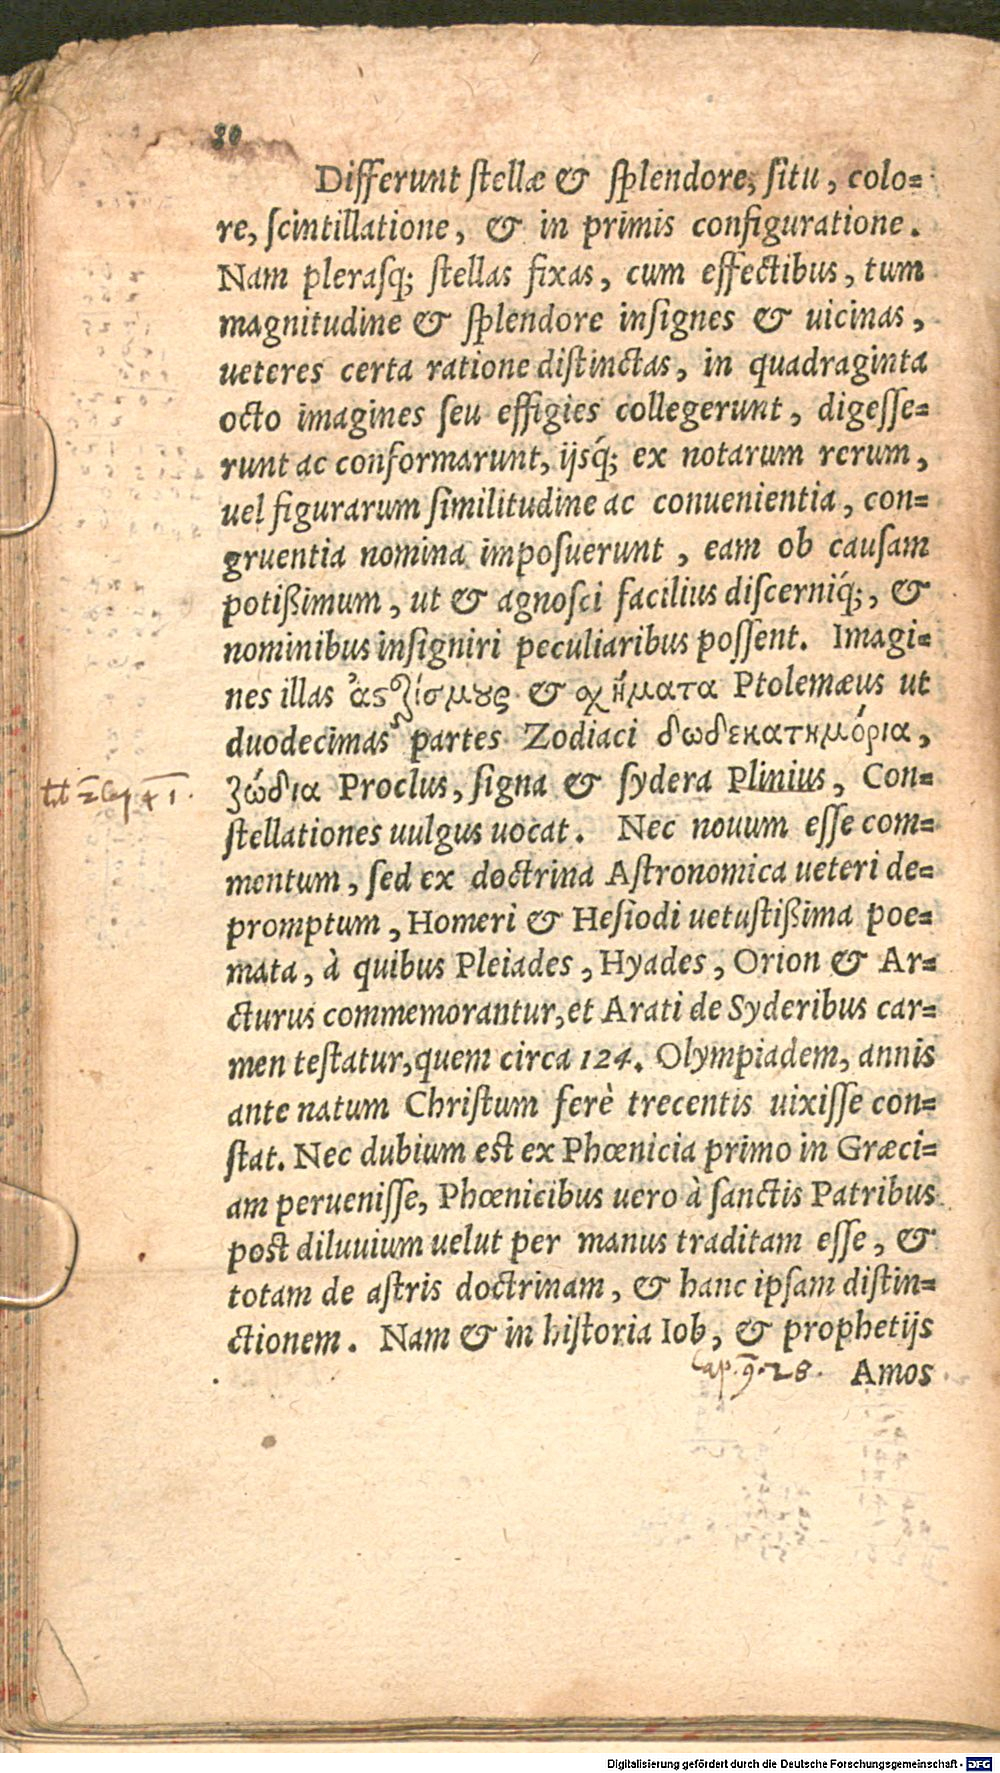 80
Differunt ſtellæ & ſplendore, ſitu, colo=
re, ſcintillatione, & in primis configuratione.
Nam plerasq; ſtellas fixas, cum effectibus, tum
magnitudine & ſplendore inſignes & uicinas,
ueteres certa ratione diſtinctas, in quadraginta
octo imagines ſeu effigies collegerunt, digeſſe=
runt ac conformarunt, ijsq́; ex notarum rerum,
uel figurarum ſimilitudine ac conuenientia, con=
gruentia nomina impoſuerunt, eam ob cauſam
potißimum, ut & agnoſci facilius diſcerniq́;, &
nominibus inſigniri peculiaribus poſſent. Imagi=
nes illas ἀςερίσμους & σχήματα Ptolemæus ut
duodecimas partes Zodiaci δωδεκατημόρια,
ζώδια Proclus, ſigna & ſydera Plinius, Con=
ſtellationes uulgus uocat. Nec nouum eſſe com=
mentum, ſed ex doctrina Aſtronomica ueteri de=
promptum, Homeri & Heſiodi uetuſtißima poe=
mata, à quibus Pleiades, Hyades, Orion & Ar=
cturus commemorantur, et Arati de Syderibus car=
men teſtatur, quem circa 124. Olympiadem, annis
ante natum Chriſtum ferè trecentis uixiſſe con=
ſtat. Nec dubium eſt ex Phœnicia primo in Græci=
am perueniſſe, Phœnicibus uero à ſanctis Patribus
poſt diluuium uelut per manus traditam eſſe, &
totam de aſtris doctrinam, & hanc ipſam diſtin=
ctionem. Nam & in hiſtoria Iob, & prophetijs
Cap. 9. 28. Amos
Digitalisierung gefördert durch die Deutsche Forschungsgemeinschaft - DFG